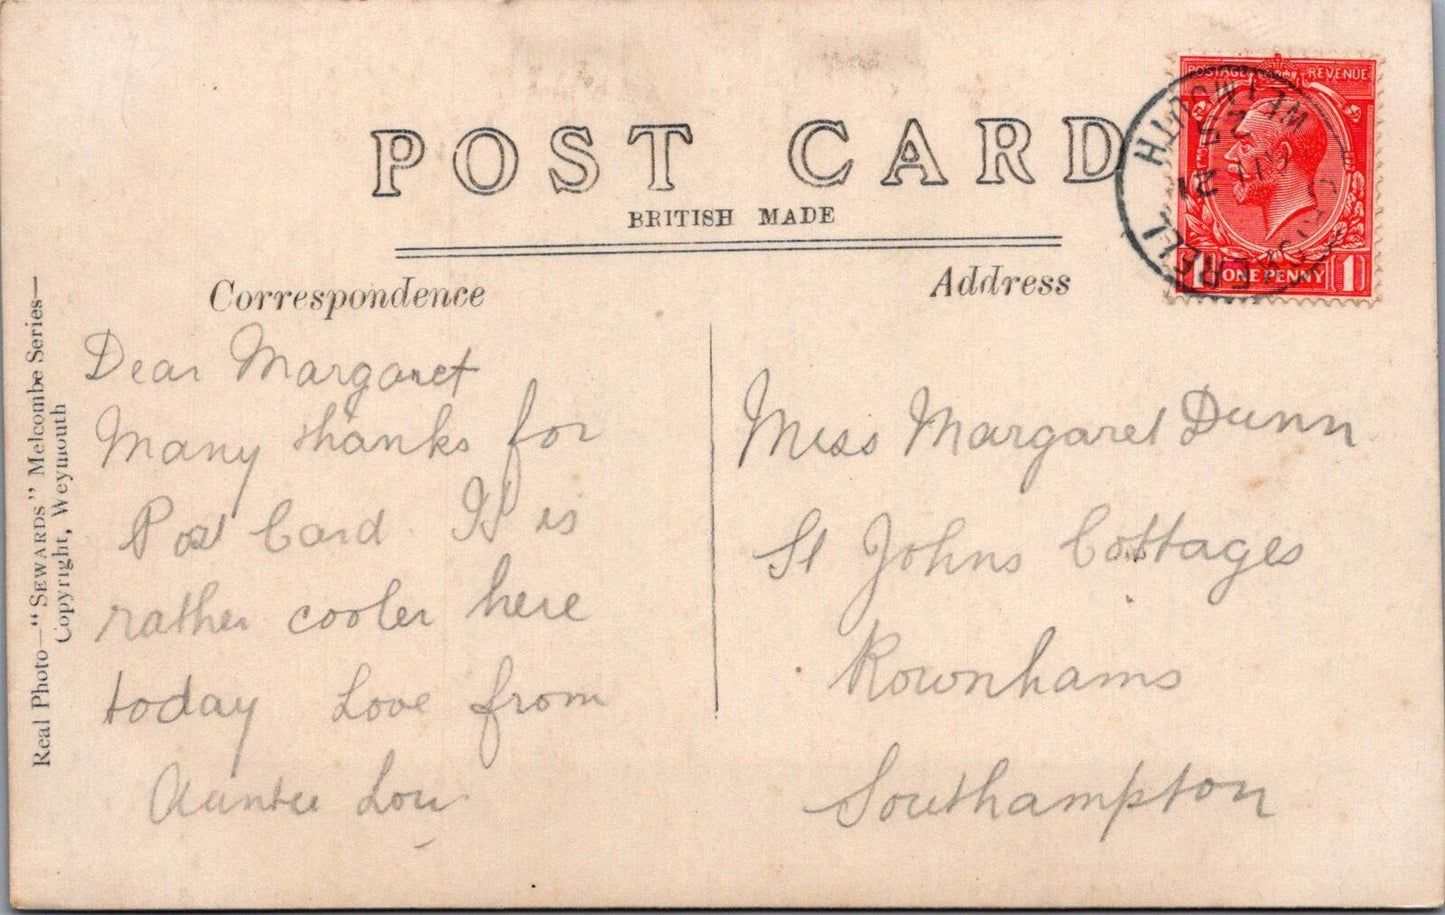 POST CARD
BRITISH MADE
Correspondence
Address
POSTAGE REVENUE
ONE PENNY
1
WEYMOUTH
Real Photo—"SEWARDS" Melcombe Series—
Copyright, Weymouth
Dear Margaret
Many thanks for
Post Card It is
rather cooler here
today Love from
Auntie Lou
Miss Margaret Dunn
St Johns Cottages
Rownhams
Southampton